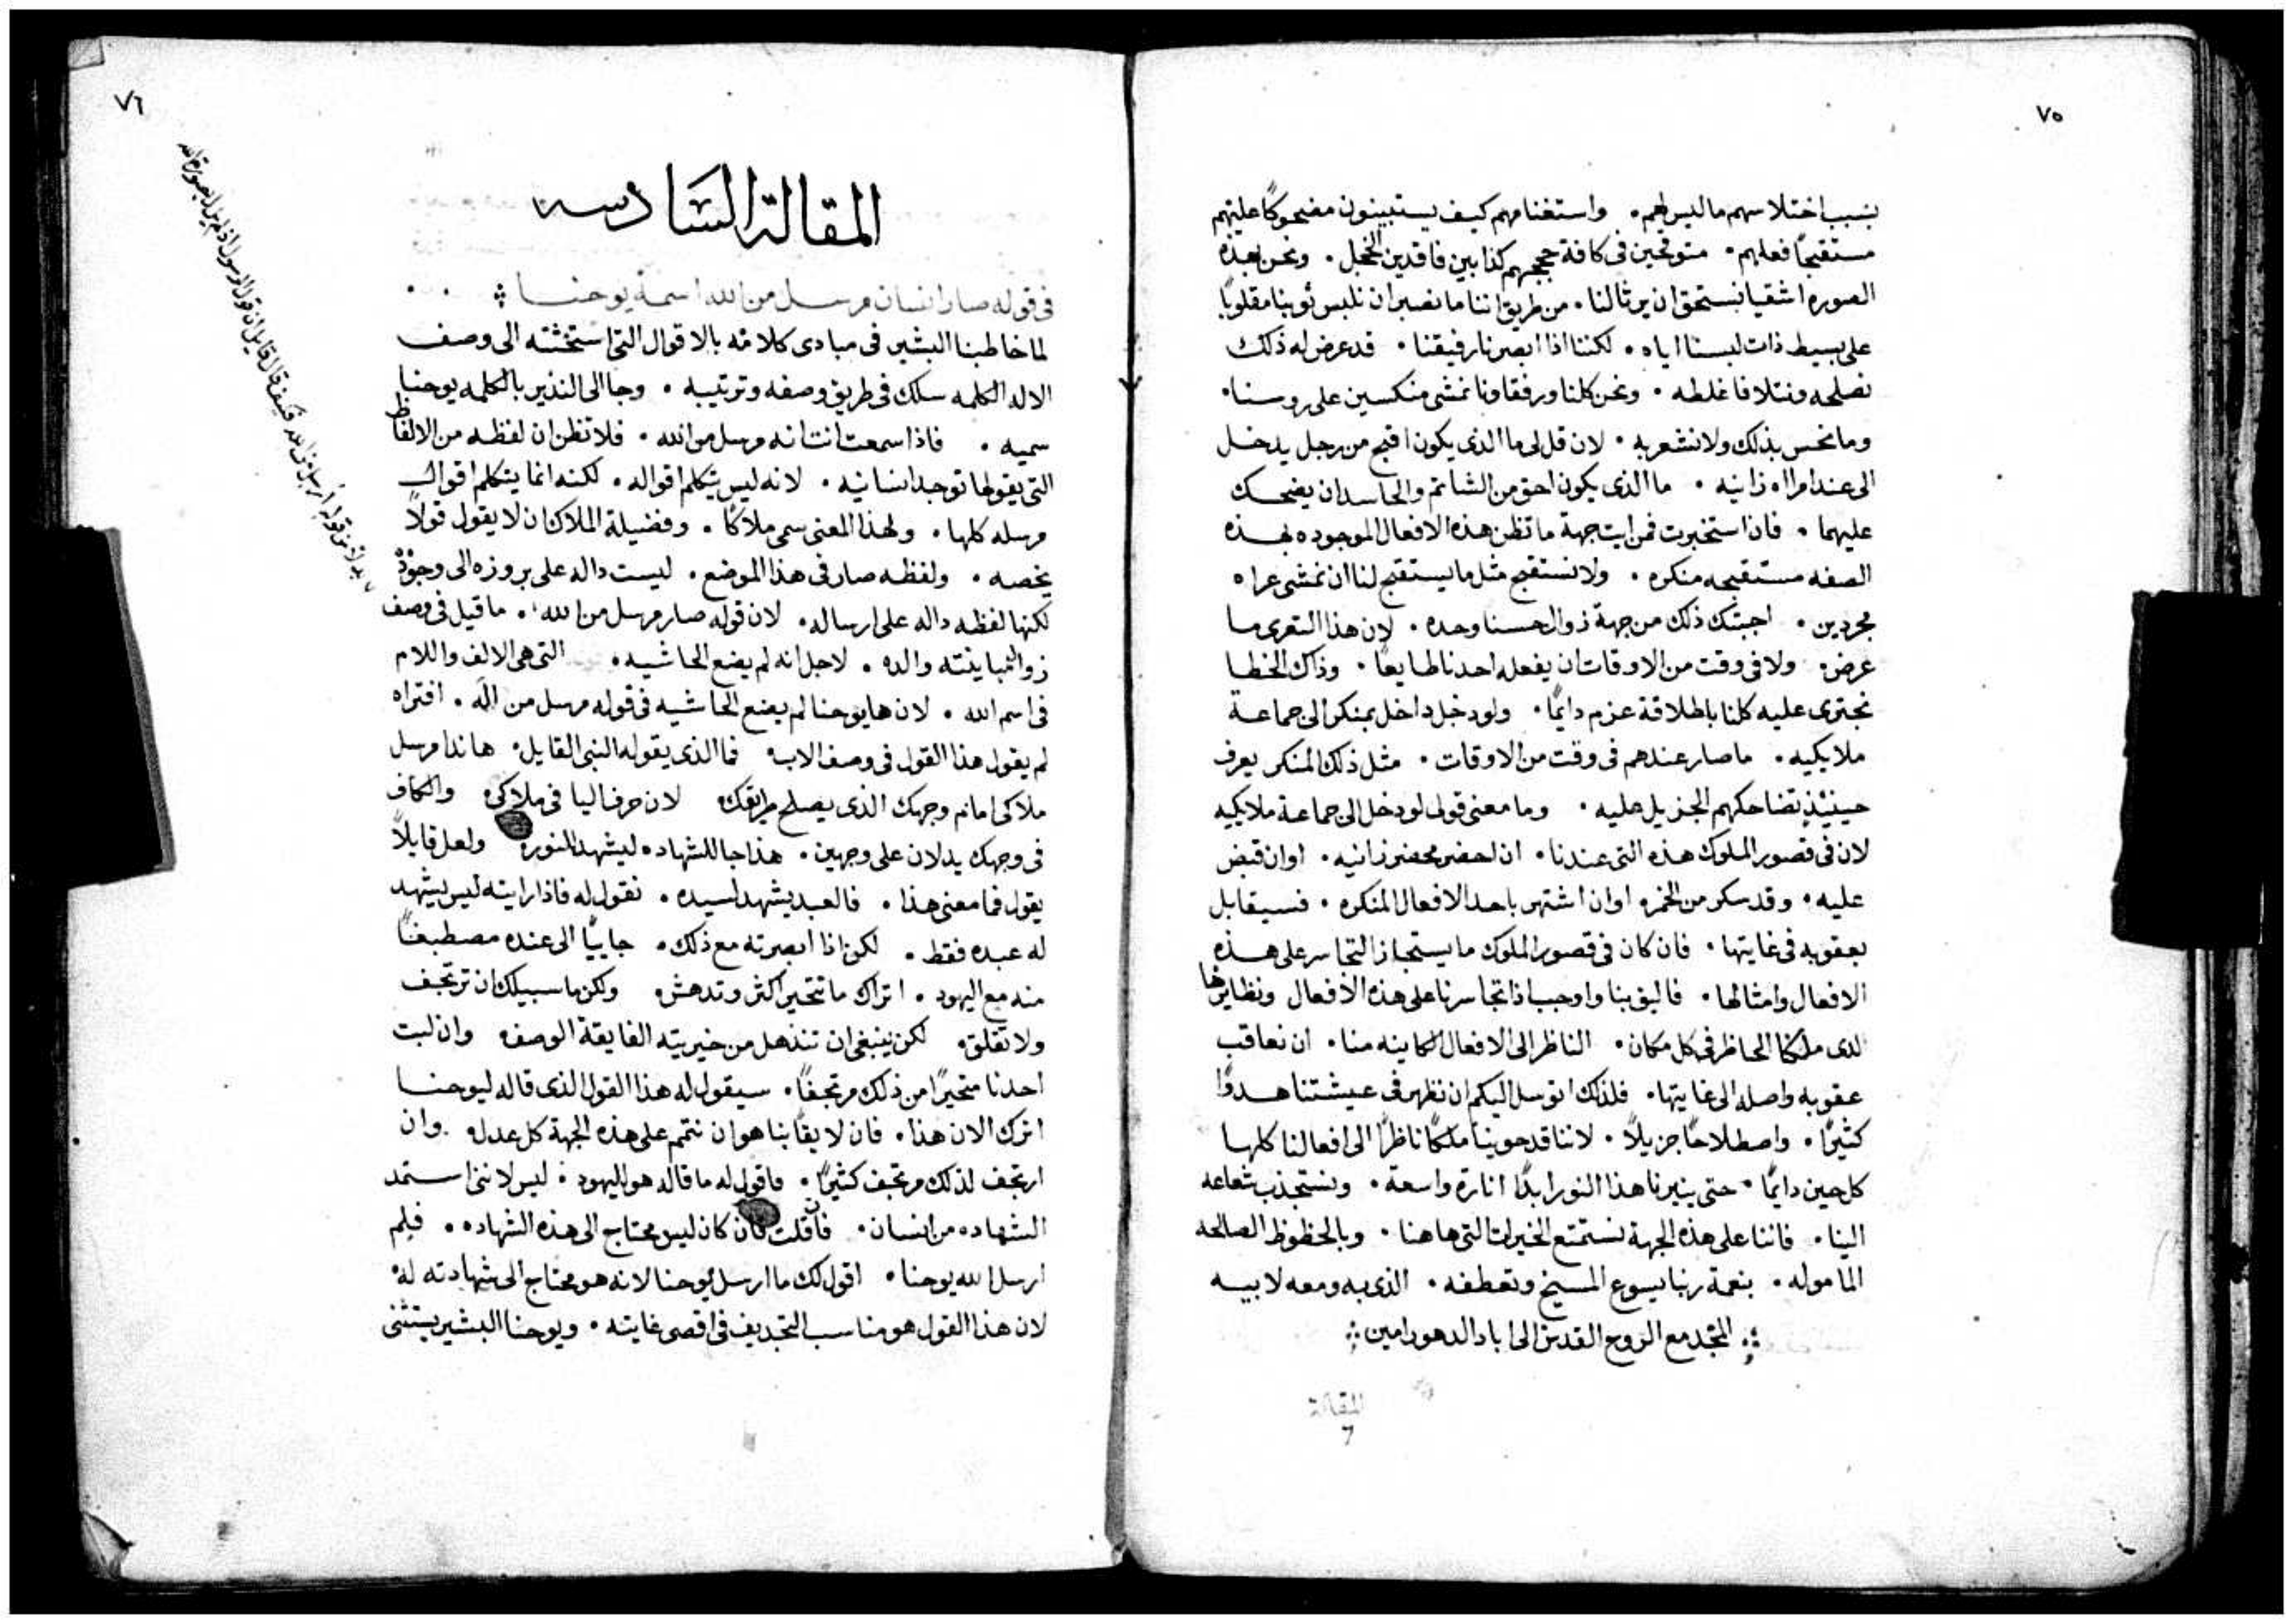 ٧٥
بسبب اختلاسهم ما ليس لهم. واستغنامهم كيف يستبينون مضحوكًا عليهم
مستقبحًا فعلهم. متوقحين فى كافة حججهم كذابين فاقدين الخجل. ونحن بهذه
الصوره اشقيا نستحق ان يرثا لنا. من طريق اننا ما نصبر ان نلبس ثوبنا مقلوبًا
على بسيط ذات لبسنا اياه. لكننا اذا ابصرنا رفيقنا. قد عرض له ذلك
نصلحه ونتلافا غلطه. ونحن كلنا ورفقاونا نمشى منكسين على روسنا.
وما نحس بذلك ولا نشعر به. لان قل لى ما الذى يكون اقبح من رجل يدخل
الى عند امراه زانيه. ما الذى يكون احق من الشاتم والحاسد ان يضحك
عليهما. فان استخبرت فمن ايت جهة ما تظن هذه الافعال الموجوده بهذه
الصفه مستقبحه منكره. ولا نستقبح مثل ما يستقبح لنا ان نمشى عراه
مجردين. اجبتك ذلك من جهة زوال حسنا وحده. لان هذا التعرى ما
عرض. ولا فى وقت من الاوقات ان يفعله احدنا طايعًا. وذاك الخطا
نجترى عليه كلنا باطلاقة عزم دايمًا. ولو دخل داخل بمنكر الى جماعة
ملايكيه. ما صار عندهم فى وقت من الاوقات. مثل ذلك المنكر يعرف
حينيذٍ تضاحكهم الجزيل عليه. وما معنى قولى لو دخل الى جماعة ملايكيه
لان فى قصور الملوك هذه التى عندنا. ان احضر محضر زانيه. او ان قبض
عليه. وقد سكر من الخمره او ان اشتهر باحد الافعال المنكره. فسيقابل
بعقوبه فى غايتها. فان كان فى قصور الملوك ما يستجاز التجاسر على هذه
الافعال وامثالها. فاليق بنا واوجب اذا تجاسرنا على هذه الافعال ونظايرها
لدى ملكنا الحاظر فى كل مكان. الناظر الى الافعال الكاينه منا. ان نعاقب
عقوبه واصله الى غايتها. فلذلك اتوسل اليكم ان نظهر فى عيشتنا هدوًا
كثيرًا. واصطلاحًا جزيلاً. لاننا قد حوينا ملكًا ناظرًا الى افعالنا كلها
كل حين دايمًا. حتى ينيرنا هذا النور ابدًا انارة واسعة. ونستجذب شعاعه
الينا. فاننا على هذه الجهة نستمتع الخيرات التى هاهنا. وبالحظوظ الصالحه
الماموله. بنعمة ربنا يسوع المسيح وتعطفه. الذى به ومعه لابيه
المجد مع الروح القدس الى اباد الدهور امين
المقالة
٦
٧٦
المقالة السادسه
فى قوله صار انسان مرسل من الله اسمه يوحنا
لما خاطبنا البشير فى مبادى كلامه بالاقوال التى استحثته الى وصف
الاله الكلمه سلك فى طريق وصفه وترتيبه. وجا الى النذير بالكلمه يوحنا
سميه. فاذا سمعت انت انه مرسل من الله. فلا تظن ان لفظه من الالفاظ
التى يقولها توجد انسانيه. لانه ليس يتكلم اقواله. لكنه انما يتكلم اقوال
مرسله كلها. ولهذا المعنى سمى ملاكًا. وفضيلة الملاك ان لا يقول قولاً
يخصه. ولفظه صار فى هذا الموضع. ليست داله على بروزه الى وجوده
لكنها لفظه داله على ارساله. لان قوله صار مرسل من الله. ما قيل فى وصف
والده. لاجل انه لم يضع الحاشيه. التى هى الالف واللام
فى اسم الله. لان ها يوحنا لم يضع الحاشيه فى قوله مرسل من اله. افتراه
لم يقول هذا القول فى وصف الاب. فما الذى يقوله النبى القايل. هانذا مرسل
ملاكى امام وجهك الذى يصلح طريقك. لان حرف اليا فى ملاكى. والكاف
فى وجهك يدلان على وجهين. هذا جا للشهاده ليشهد للنور. ولعل قايلاً
يقول فما معنى هذا. فالعبد يشهد لسيده. نقول له فاذا رايته ليس يشهد
له عبده فقط. لكن اذا ابصرته مع ذلك. جاييًا الى عنده مصطبغًا
منه مع اليهود. اتراك ما تتحير اكثر وتدهش. ولكن ما سبيلك ان ترتجف
ولا تقلق. لكن ينبغى ان تنذهل من خيريته الفايقة الوصف. وان لبث
احدنا متحيرًا من ذلك مرتجفًا. سيقول له هذا القول الذى قاله ليوحنا
اترك الان هذا. فان لايقًا بنا هو ان نتمم على هذه الجهة كل عدل. وان
ارتجف لذلك مرتجف كثيرًا. فاقول له ما قاله هو لليهود. ليس لاننى استمد
الشهاده من انسان. فان قلت فان كان ليس محتاج الى هذه الشهاده. فلم
ارسل الله يوحنا. اقول لك ما ارسل يوحنا لانه هو محتاج الى شهادته له.
لان هذا القول هو مناسب التجديف فى اقصى غايته. ويوحنا البشير يستثنى